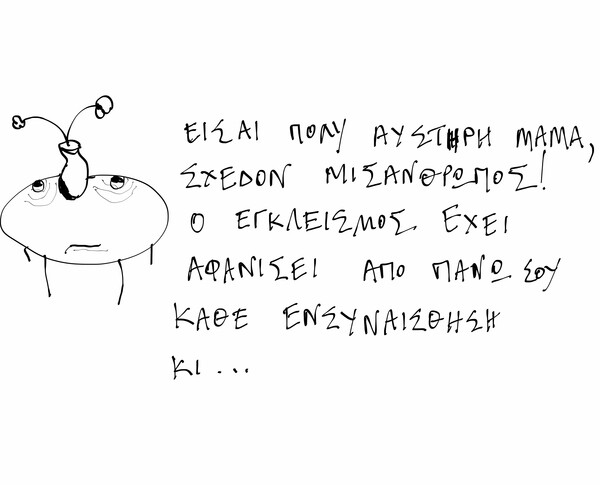 ΕΙΣΑΙ ΠΟΛΥ ΑΥΣΤΗΡΗ ΜΑΜΑ,
ΣΧΕΔΟΝ ΜΙΣΑΝΘΡΩΠΟΣ!
Ο ΕΓΚΛΕΙΣΜΟΣ ΕΧΕΙ
ΑΦΑΝΙΣΕΙ ΑΠΟ ΠΑΝΩ ΣΟΥ
ΚΑΘΕ ΕΝΣΥΝΑΙΣΘΗΣΗ
ΚΙ...